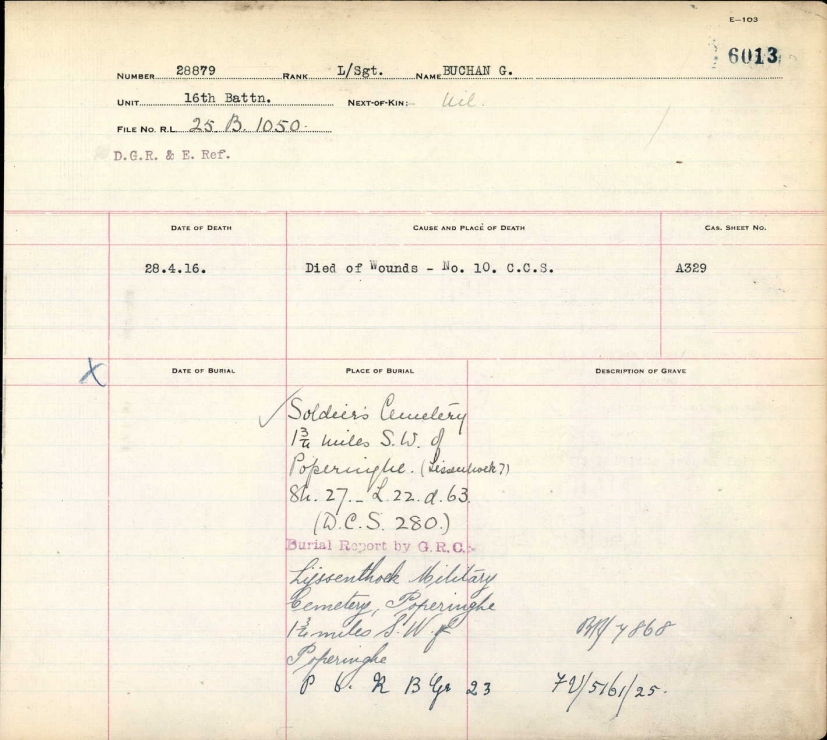 E—103
6013
NUMBER 28879 RANK L/Sgt. NAME BUCHAN G.
UNIT 16th Battn. NEXT-OF-KIN:- Nil.
FILE NO. R.L. 25 B. 1050.
D.G.R. & E. Ref.
DATE OF DEATH CAUSE AND PLACE OF DEATH CAS. SHEET NO.
28.4.16. Died of Wounds - No. 10. C.C.S. A329
X DATE OF BURIAL PLACE OF BURIAL DESCRIPTION OF GRAVE
Soldier's Cemetery
1¾ miles S.W. of
Poperinghe. (Lissenhoek?)
Sh. 27. - L.22.d.63.
(D.C.S. 280.)
Burial Report by G.R.C:-
Lijssenthoek Military
Cemetery, Poperinghe
1¾ miles S.W. of 7868
Poperinghe
P B Gr 23 /5161/25.